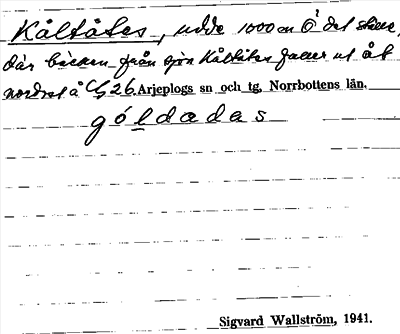 Kåltåtes, udde 1000 m Ö det ställe,
där bäcken från sjön Kåltåtes faller ut åt
nordost å C426. Arjeplogs sn och tg, Norrbottens län.
góldadas
Sigvard Wallström, 1941.